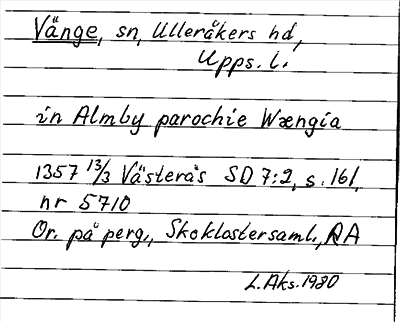 Vänge, sn, Ulleråkers hd,
Upps. l.
in Almby parochie Wængia
1357 13/3 Västerås SD 7:2, s. 161,
nr 5710
Or. på perg., Skoklostersaml., RA
L. Aks. 1980